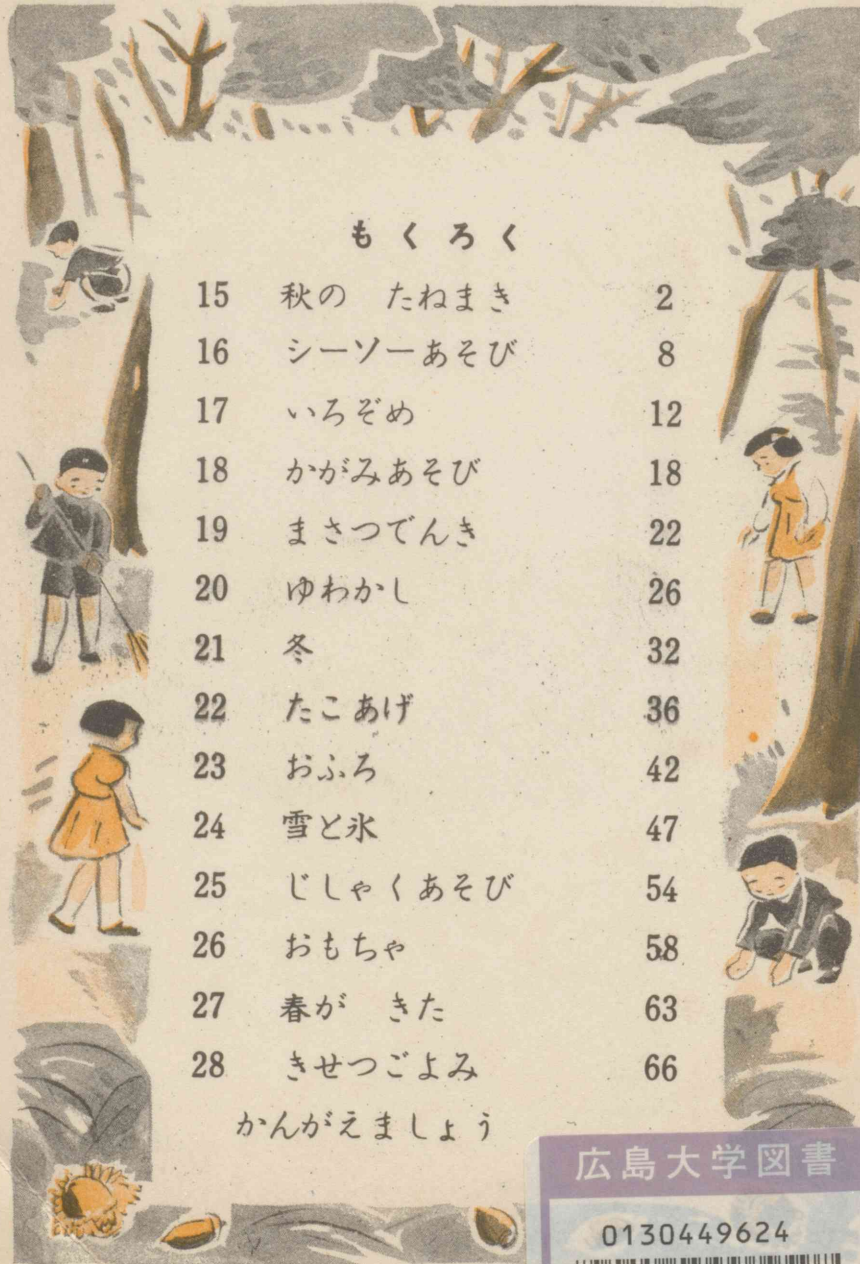 もくろく
15 秋の たねまき 2
16 シーソーあそび 8
17 いろぞめ 12
18 かがみあそび 18
19 まさつでんき 22
20 ゆわかし 26
21 冬 32
22 たこあげ 36
23 おふろ 42
24 雪と氷 47
25 じしゃくあそび 54
26 おもちゃ 58
27 春が きた 63
28 きせつごよみ 66
かんがえましょう
広島大学図書
0130449624